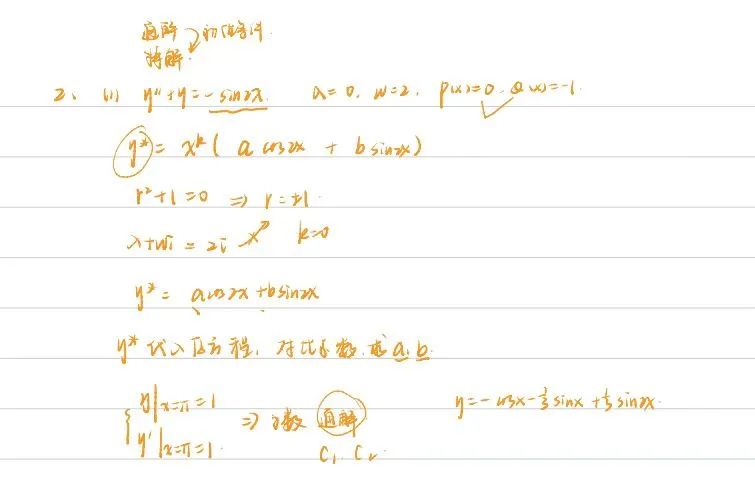 通解 初值条件.
特解.
2、 (1) y''+y=-sin2x. λ=0. w=2. P(x)=0. Q(x)=-1.
y*= x^k ( a cos2x + b sin2x)
r²+1=0 ⇒ r=±1.
λ+wi = 2i × k=0
y* = a cos2x + b sin2x
y* 代入原方程, 对比系数, 求 a. b.
{ y|x=π =1 y'|x=π =1. ⇒ 通解 C₁. C₂ y=-cosx-⅓sinx+⅓sin2x.